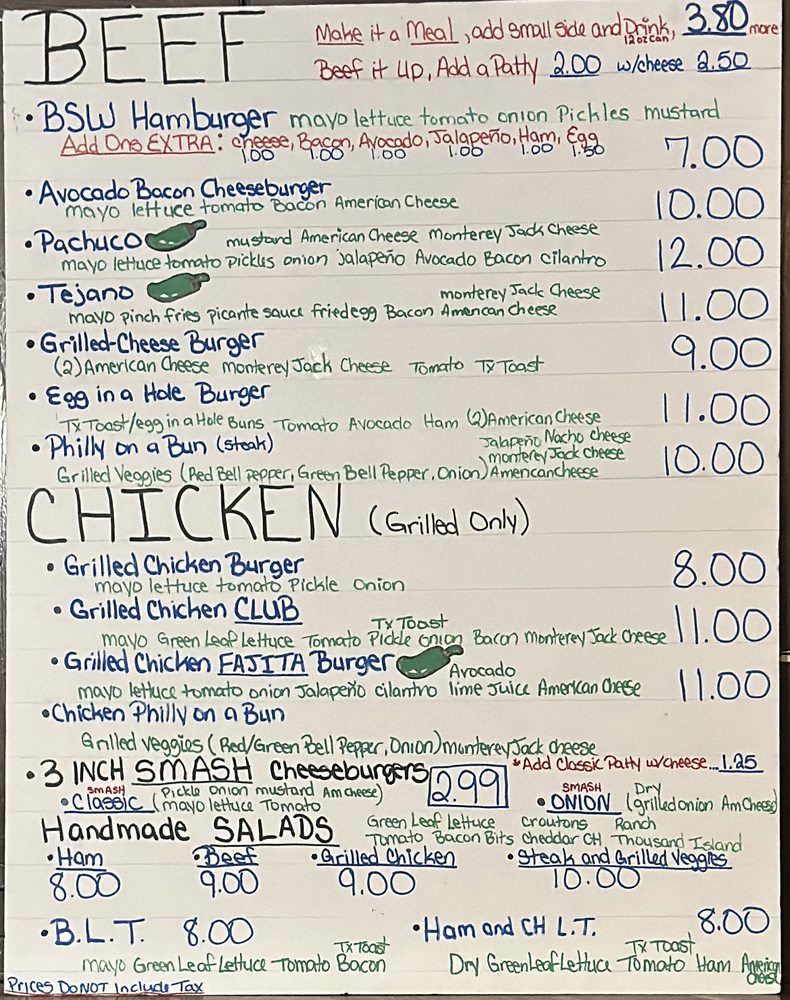 BEEF
Make it a Meal, add small side and Drink, 3.80 more
12 oz can
Beef it Up, Add a Patty 2.00 w/cheese 2.50
• BSW Hamburger mayo lettuce tomato onion Pickles mustard
Add Ons EXTRA: cheese, Bacon, Avocado, Jalapeño, Ham, Egg
1.00 1.00 1.00 1.00 1.00 1.50
7.00
• Avocado Bacon Cheeseburger
mayo lettuce tomato Bacon American Cheese
10.00
• Pachuco mustard American Cheese Monterey Jack Cheese
mayo lettuce tomato pickles onion jalapeño Avocado Bacon cilantro
12.00
• Tejano monterey Jack Cheese
mayo pinch fries picante sauce fried egg Bacon American cheese
11.00
• Grilled-Cheese Burger
(2) American Cheese monterey Jack Cheese Tomato Tx Toast
9.00
• Egg in a Hole Burger
Tx Toast/egg in a Hole Buns Tomato Avocado Ham (2) American Cheese
11.00
• Philly on a Bun (steak) Jalapeño Nacho cheese
monterey Jack Cheese
Grilled Veggies (Red Bell pepper, Green Bell Pepper, Onion) American cheese
10.00
CHICKEN (Grilled Only)
• Grilled Chicken Burger
mayo lettuce tomato Pickle onion
8.00
• Grilled Chicken CLUB
Tx Toast
mayo Green Leaf Lettuce Tomato Pickle onion Bacon Monterey Jack Cheese
11.00
• Grilled Chicken FAJITA Burger Avocado
mayo lettuce tomato onion Jalapeño cilantro lime Juice American Cheese
11.00
• Chicken Philly on a Bun
Grilled veggies (Red/Green Bell Pepper, Onion) monterey Jack cheese
• 3 INCH SMASH Cheeseburgers 2.99
*Add Classic Patty w/cheese...1.25
SMASH
• Classic (Pickle onion mustard Am Cheese)
mayo lettuce Tomato
SMASH Dry
• ONION (grilled onion Am Cheese)
Handmade SALADS
Green Leaf Lettuce Croutons Ranch
Tomato Bacon Bits cheddar CH Thousand Island
• Ham • Beef • Grilled Chicken • Steak and Grilled Veggies
8.00 9.00 9.00 10.00
• B.L.T. 8.00
Tx Toast
mayo Green Leaf Lettuce Tomato Bacon
• Ham and CH L.T. 8.00
Tx Toast
Dry Green Leaf Lettuce Tomato Ham American Cheese
Prices Do NOT Include Tax